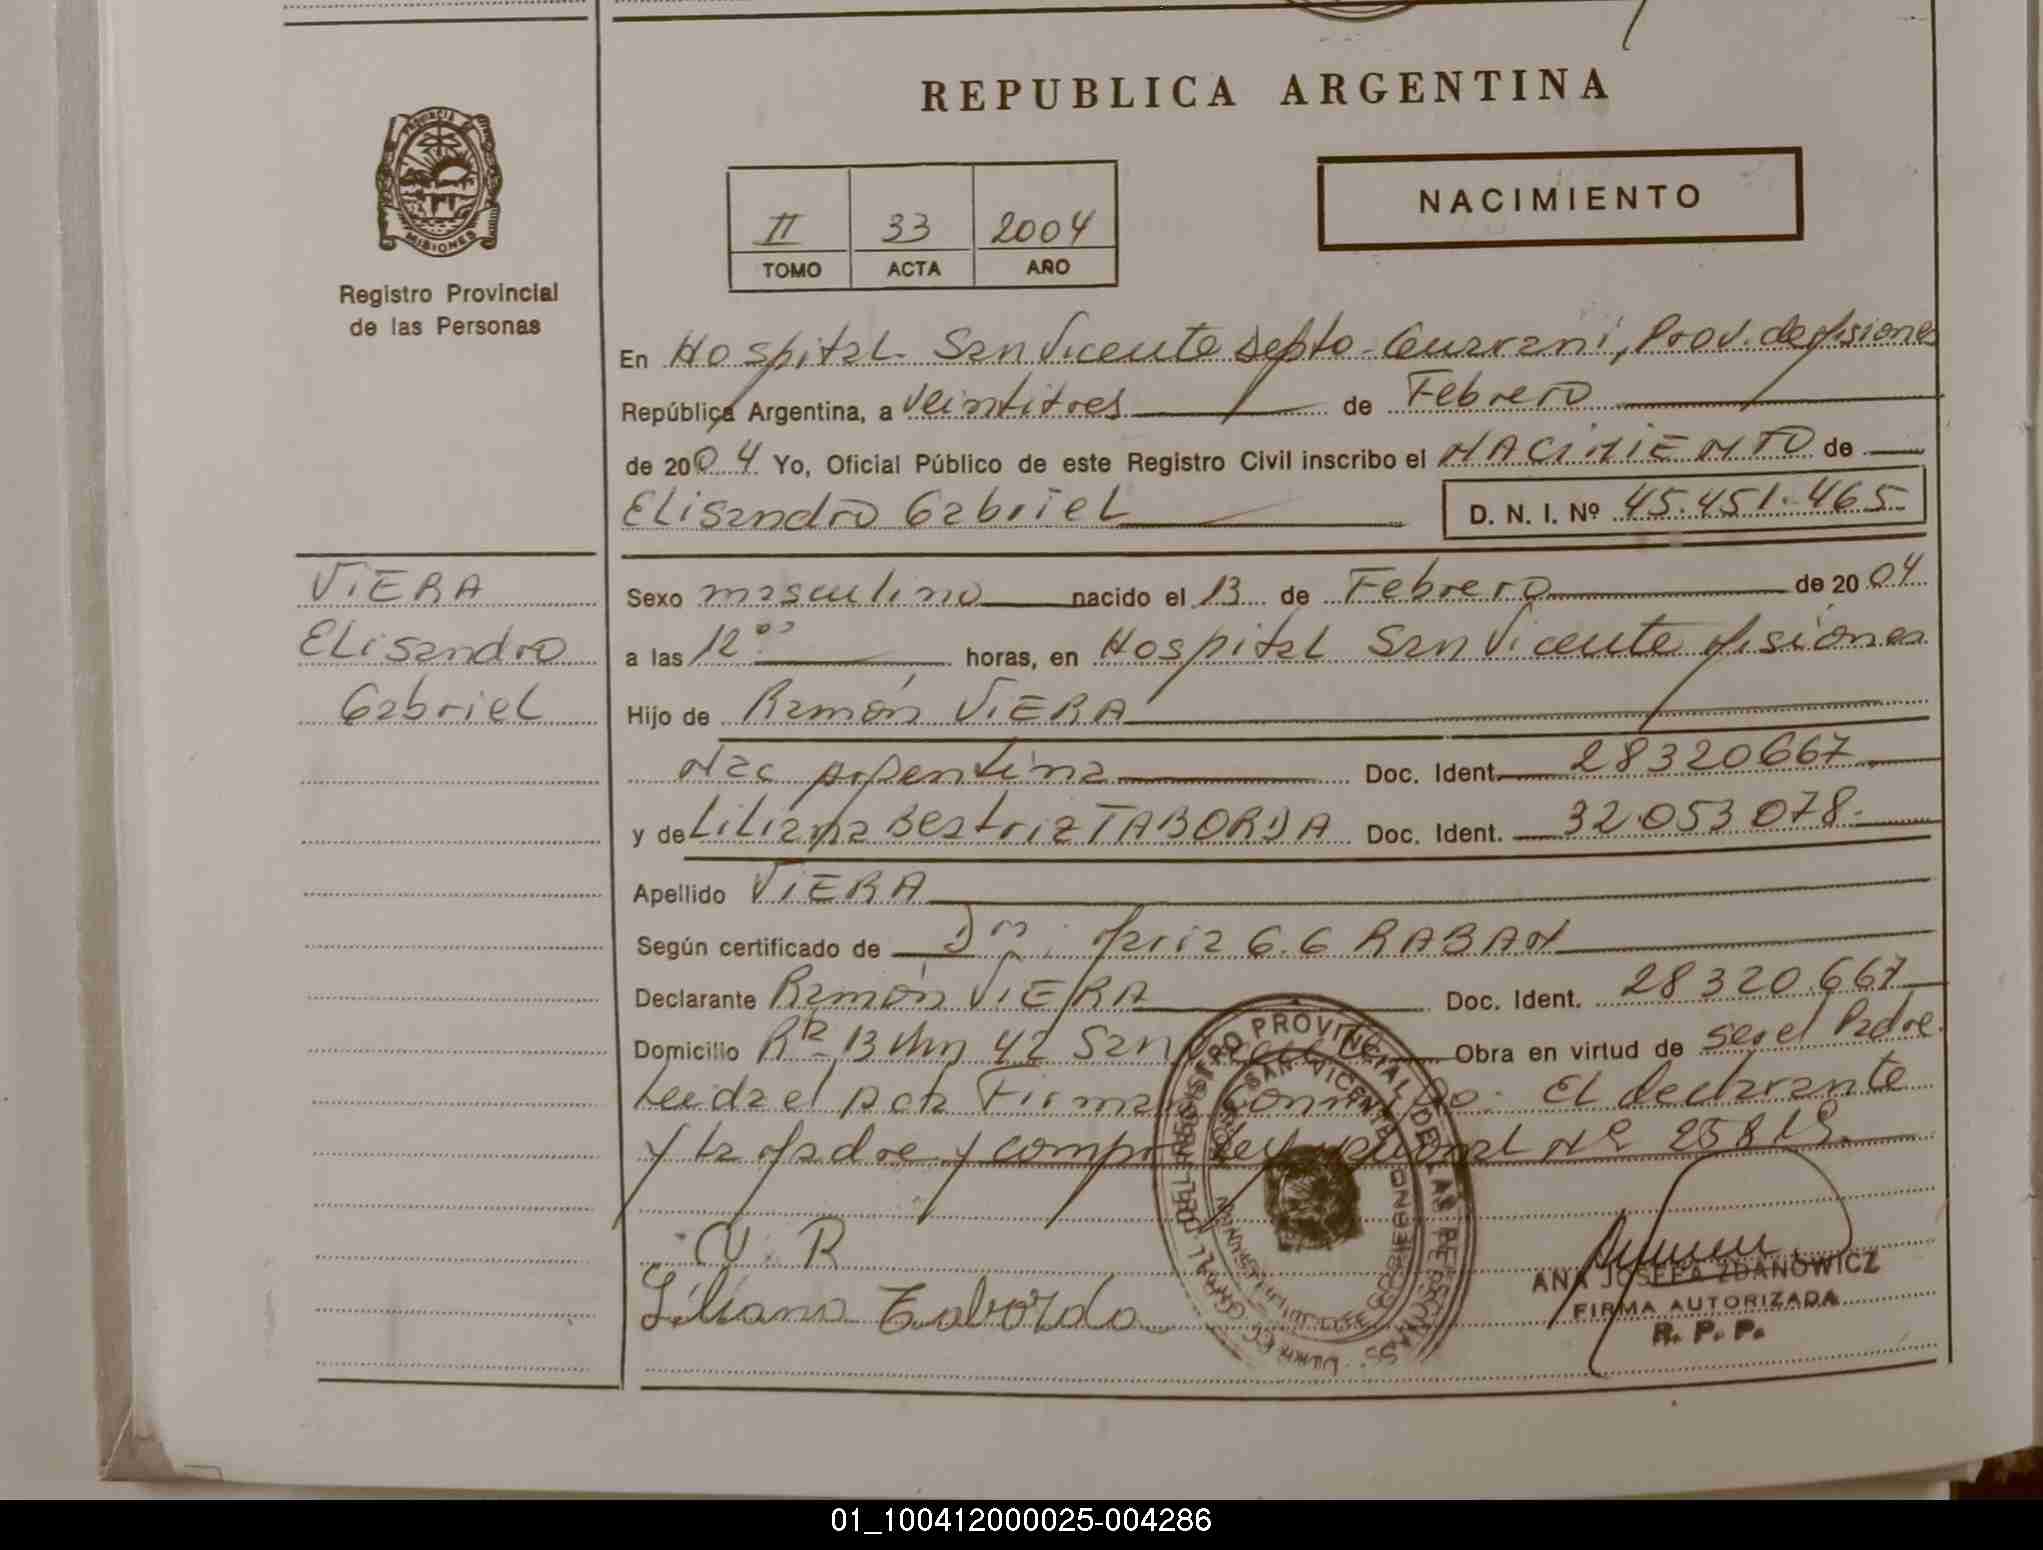 REPUBLICA ARGENTINA
PROVINCIA DE
MISIONES
Registro Provincial
de las Personas
II 33 2004
TOMO ACTA AÑO
NACIMIENTO
En Hospital San Vicente Depto. Guarani, Prov. de Misiones
República Argentina, a veintitres de Febrero
de 2004 Yo, Oficial Público de este Registro Civil inscribo el NACIMIENTO de
Elisandro Gabriel D. N. I. Nº 45.451.465
VIERA
Elisandro
Gabriel
Sexo masculino nacido el 13 de Febrero de 2004
a las 12:00 horas, en Hospital San Vicente Misiones
Hijo de Ramón VIERA
Nac Argentina Doc. Ident. 28320667
y de Liliana Beatriz TABORDA Doc. Ident. 32.053.078
Apellido VIERA
Según certificado de Dra. Maria G.G RABAN
Declarante Ramón VIERA Doc. Ident. 28320.667
Domicilio Rta 13 Km 42 San Obra en virtud de ser el Padre
Leida el acta Firman conmigo: El declarante
y la Madre y Nº 25819.
V R
Liliana Taborda
REGISTRO PROVINCIAL DE LAS PERSONAS
SAN VICENTE
ANA JOSEFA ZDANOWICZ
FIRMA AUTORIZADA
R. P. P.
01_100412000025-004286